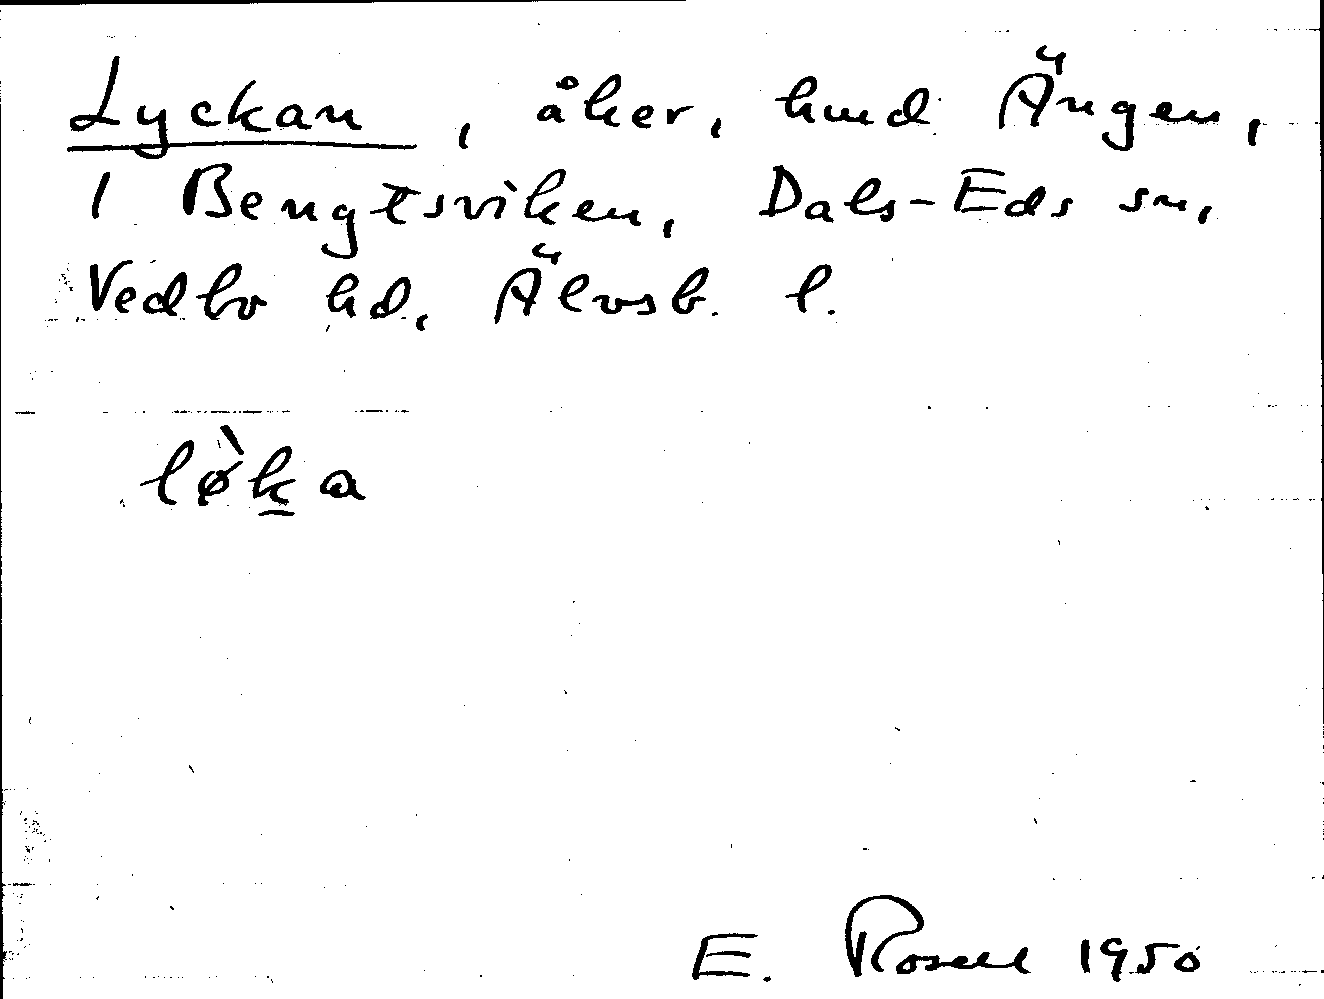 Lyckan, åker, hmd Ängen,
1 Bengtsviken, Dals-Eds sn,
Vedbo hd, Älvsb. l.
lø̀k̲a
E. Rosell 1950